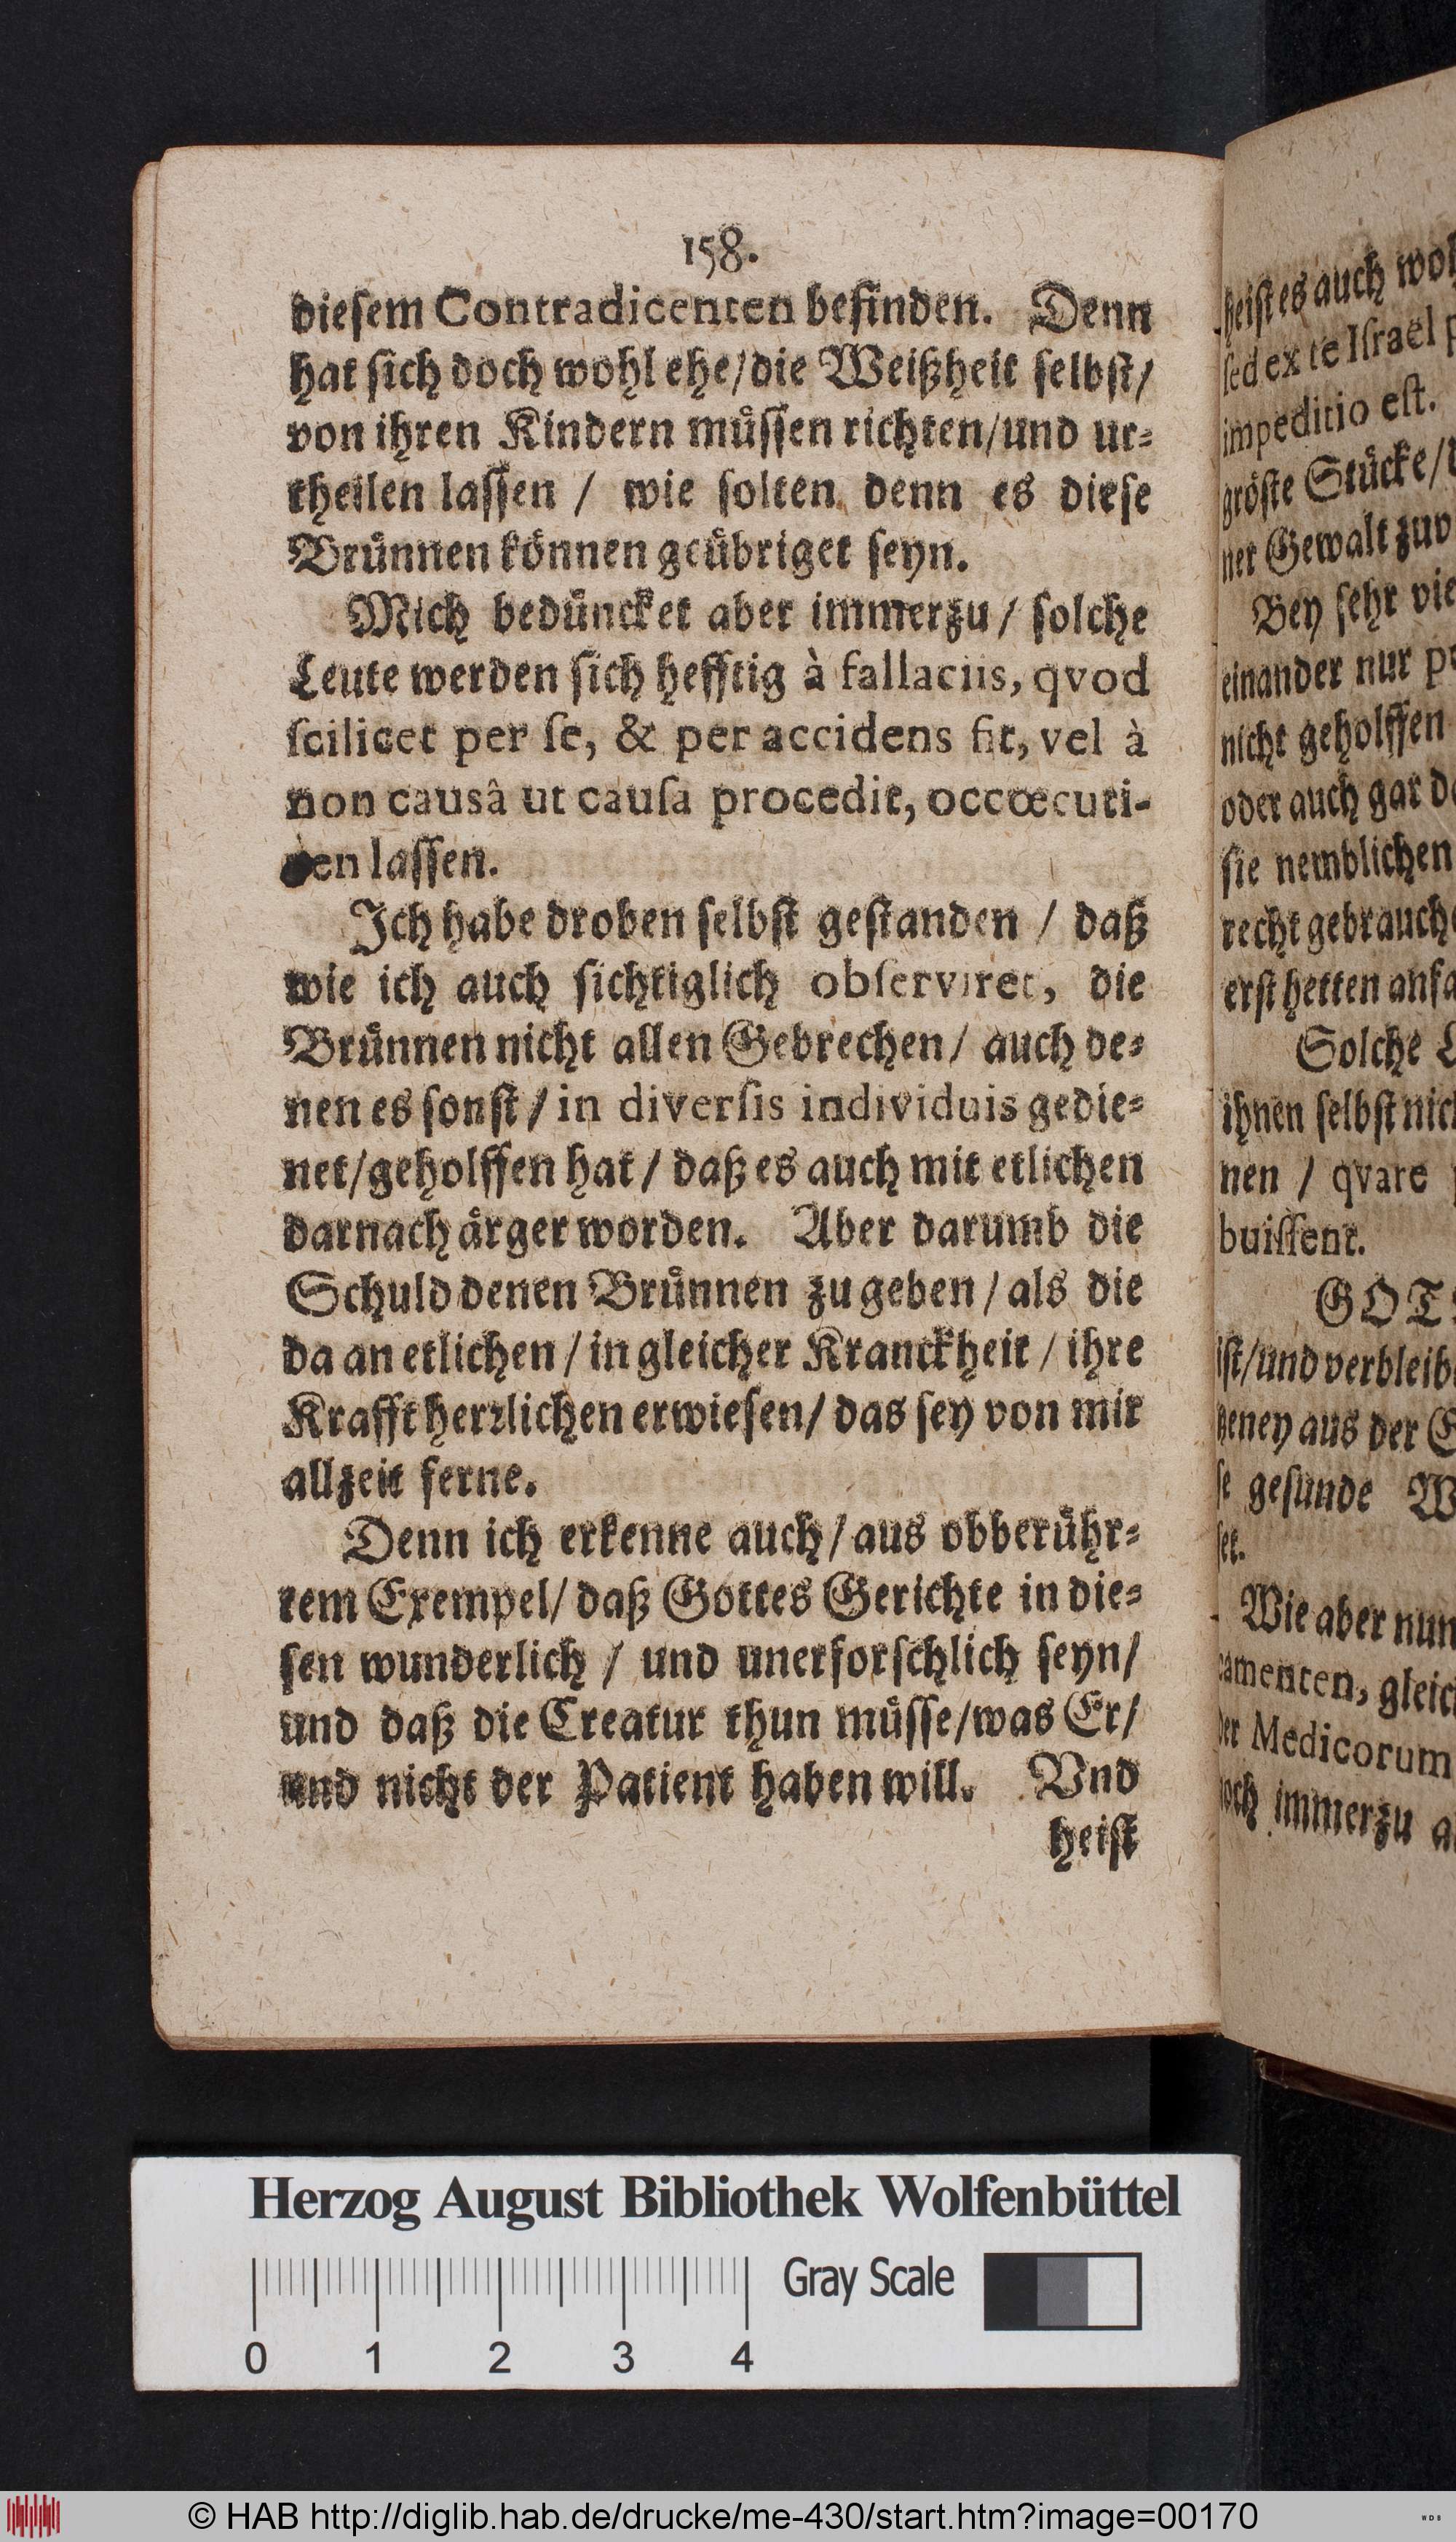 158.
dieſem Contradicenten befinden. Denn
hat ſich doch wohl ehe/die Weißheit ſelbſt/
von ihren Kindern muͤſſen richten/und ur⸗
theilen laſſen / wie ſolten denn es dieſe
Bruͤnnen koͤnnen geuͤbriget ſeyn.
Mich beduͤncket aber immerzu / ſolche
Leute werden ſich hefftig à fallaciis, qvod
ſcilicet per ſe, & per accidens fit, vel à
non causâ ut cauſa procedit, occœcuti-
ren laſſen.
Ich habe droben ſelbſt geſtanden / daß
wie ich auch ſichtiglich obſerviret, die
Bruͤnnen nicht allen Gebrechen / auch de⸗
nen es ſonſt / in diverſis individuis gedie⸗
net/geholffen hat / daß es auch mit etlichen
darnach aͤrger worden. Aber darumb die
Schuld denen Bruͤnnen zu geben / als die
da an etlichen / in gleicher Kranckheit / ihre
Krafft herꝛlichen erwieſen/ das ſey von mir
allzeit ferne.
Denn ich erkenne auch / aus obberuͤhr⸗
tem Exempel/ daß Gottes Gerichte in die⸗
ſen wunderlich / und unerforſchlich ſeyn/
und daß die Creatur thun muͤſſe/was Er/
und nicht der Patient haben will. Vnd
heiſt
heiſt es auch
ſed ex te Iſraël
impeditio eſt.
groͤſte Stuͤcke/
ner Gewalt
Bey ſehr
einander nur
nicht geholffen
oder auch gar
ſie nemblichen
recht
erſt hetten
Solche
ihnen ſelbſt
nen / qvare
buiſſent.
iſt/und
aus der
ſe geſunde
ſet.
Wie aber nun
der Medicorum
immerzu
Herzog August Bibliothek Wolfenbüttel
Gray Scale
0 1 2 3 4
© HAB http://diglib.hab.de/drucke/me-430/start.htm?image=00170
WDB